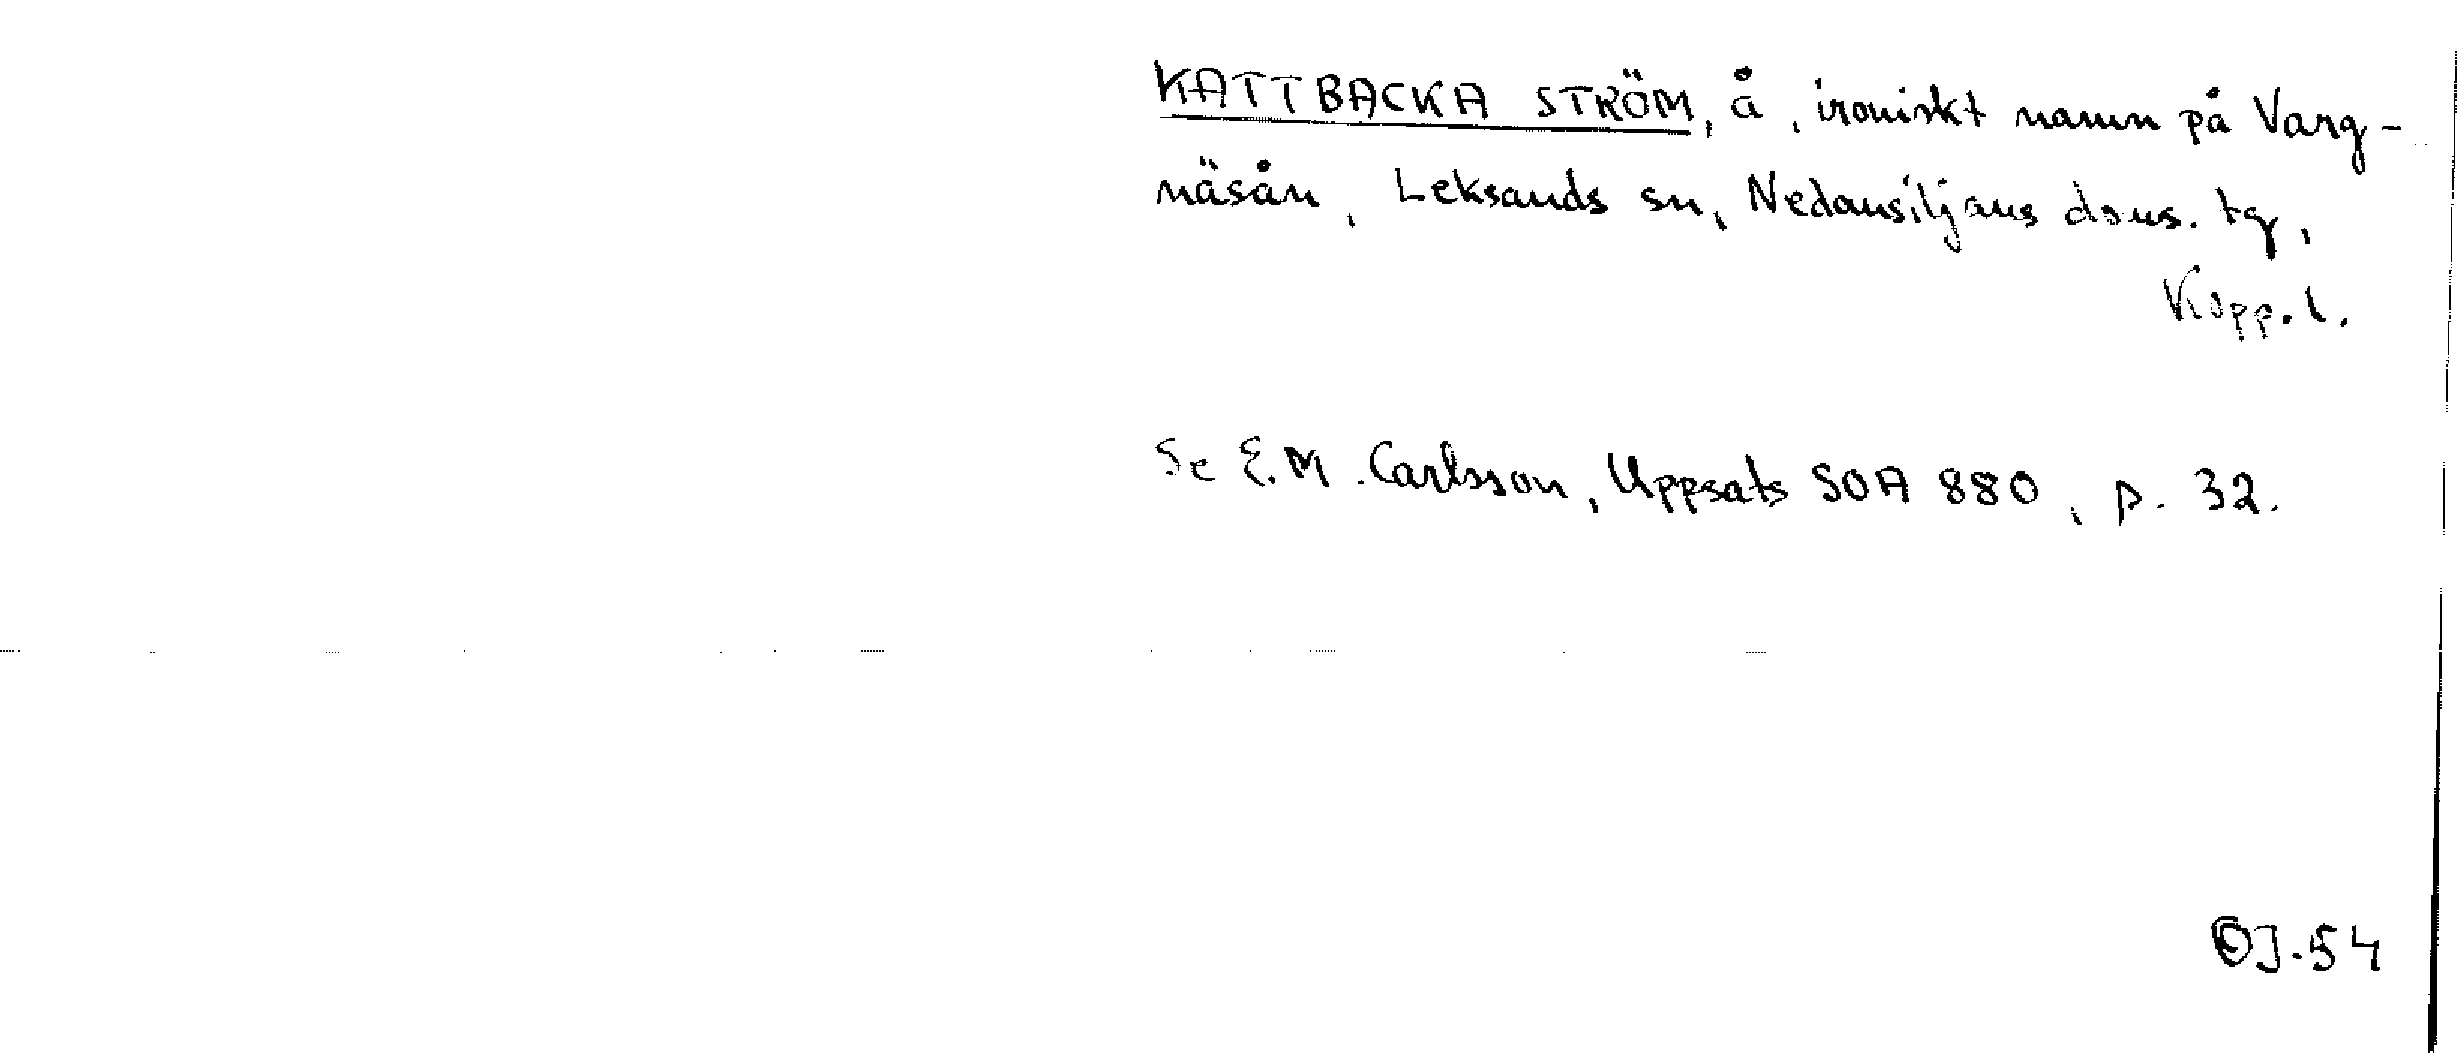 KATTBACKA STRÖM, å, ironiskt namn på Vang-
näsån, Leksands sn, Nedansiljans doms. tg,
Kopp. l.
Se E.M. Carlsson, Uppsats SOA 880, s. 32.
J-54